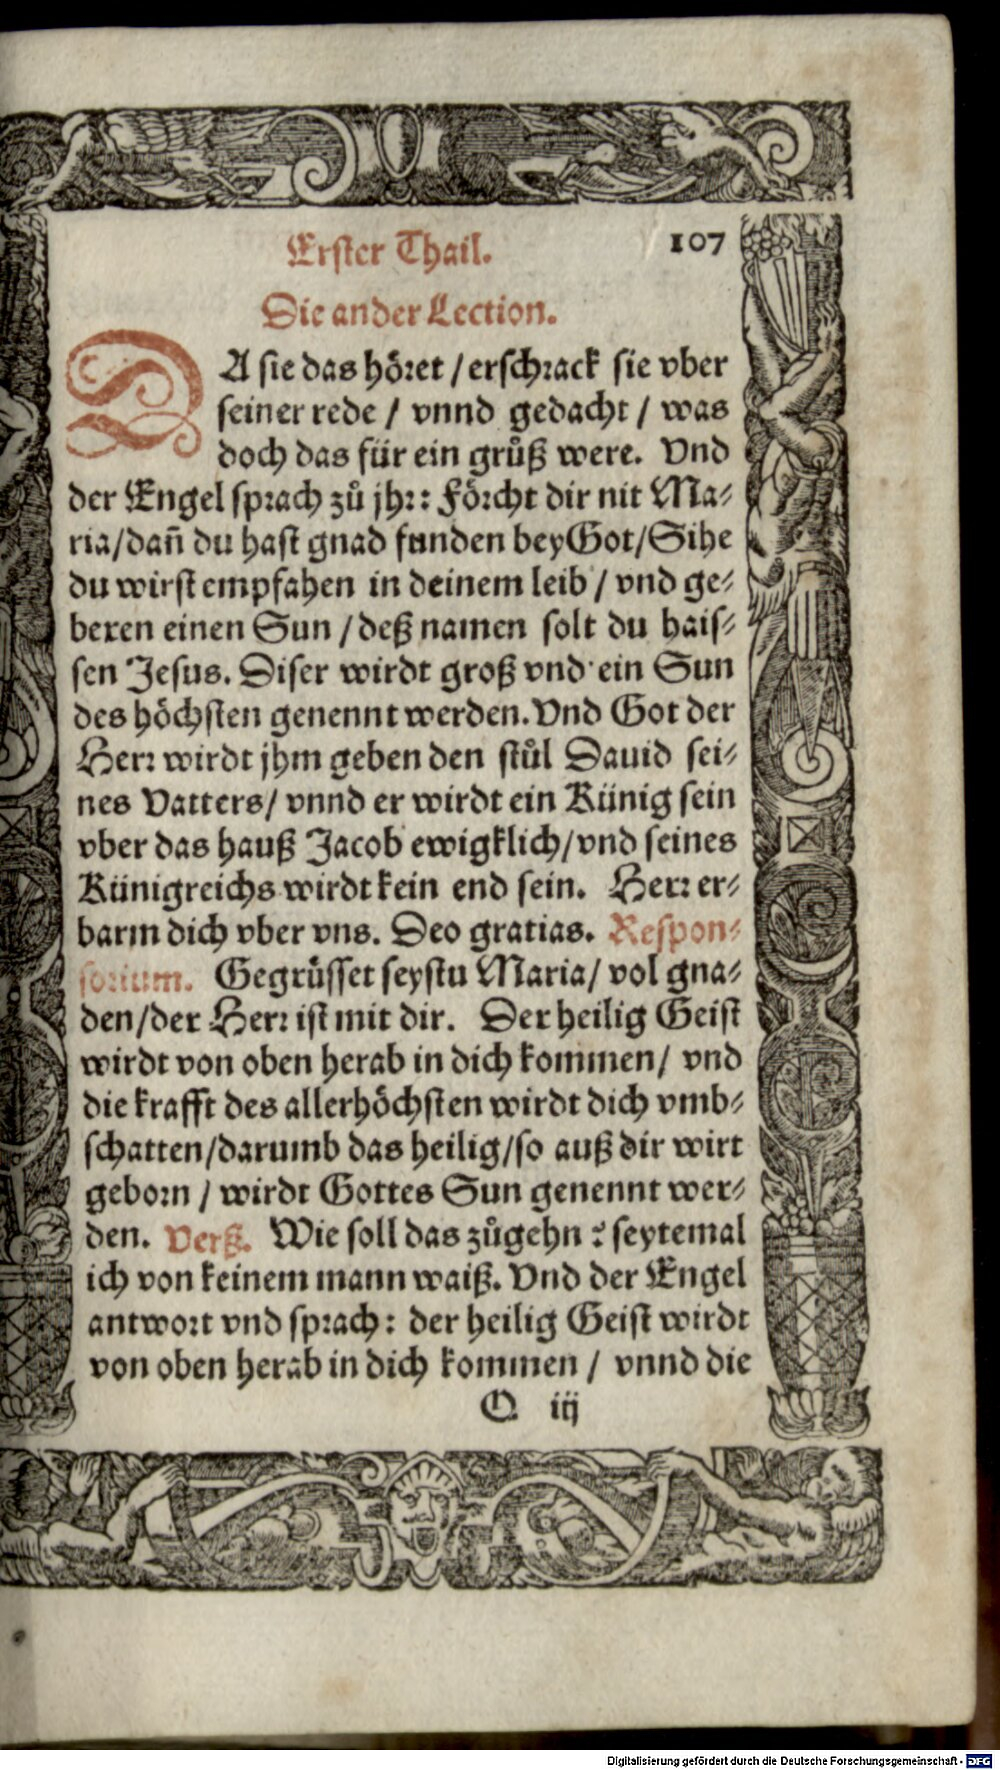 Erster Thail. 107
Die ander Lection.
DA sie das höret / erschrack sie vber
seiner rede / vnnd gedacht / was
doch das für ein grůß were. Vnd
der Engel sprach zů jhr: Förcht dir nit Ma-
ria/dañ du hast gnad funden bey Got/Sihe
du wirst empfahen in deinem leib / vnd ge-
beren einen Sun / deß namen solt du hais-
sen Jesus. Diser wirdt groß vnd ein Sun
des höchsten genennt werden. Vnd Got der
Herr wirdt jhm geben den stůl Dauid sei-
nes Vatters/ vnnd er wirdt ein Künig sein
vber das hauß Jacob ewigklich/vnd seines
Künigreichs wirdt kein end sein. Herr er-
barm dich vber vns. Deo gratias. Respon-
sorium. Gegrüsset seystu Maria/ vol gna-
den/der Herr ist mit dir. Der heilig Geist
wirdt von oben herab in dich kommen/ vnd
die krafft des allerhöchsten wirdt dich vmb-
schatten/darumb das heilig/so auß dir wirt
geborn / wirdt Gottes Sun genennt wer-
den. Verß. Wie soll das zůgehn? seytemal
ich von keinem mann waiß. Vnd der Engel
antwort vnd sprach: der heilig Geist wirdt
von oben herab in dich kommen / vnnd die
O iij
Digitalisierung gefördert durch die Deutsche Forschungsgemeinschaft - DFG